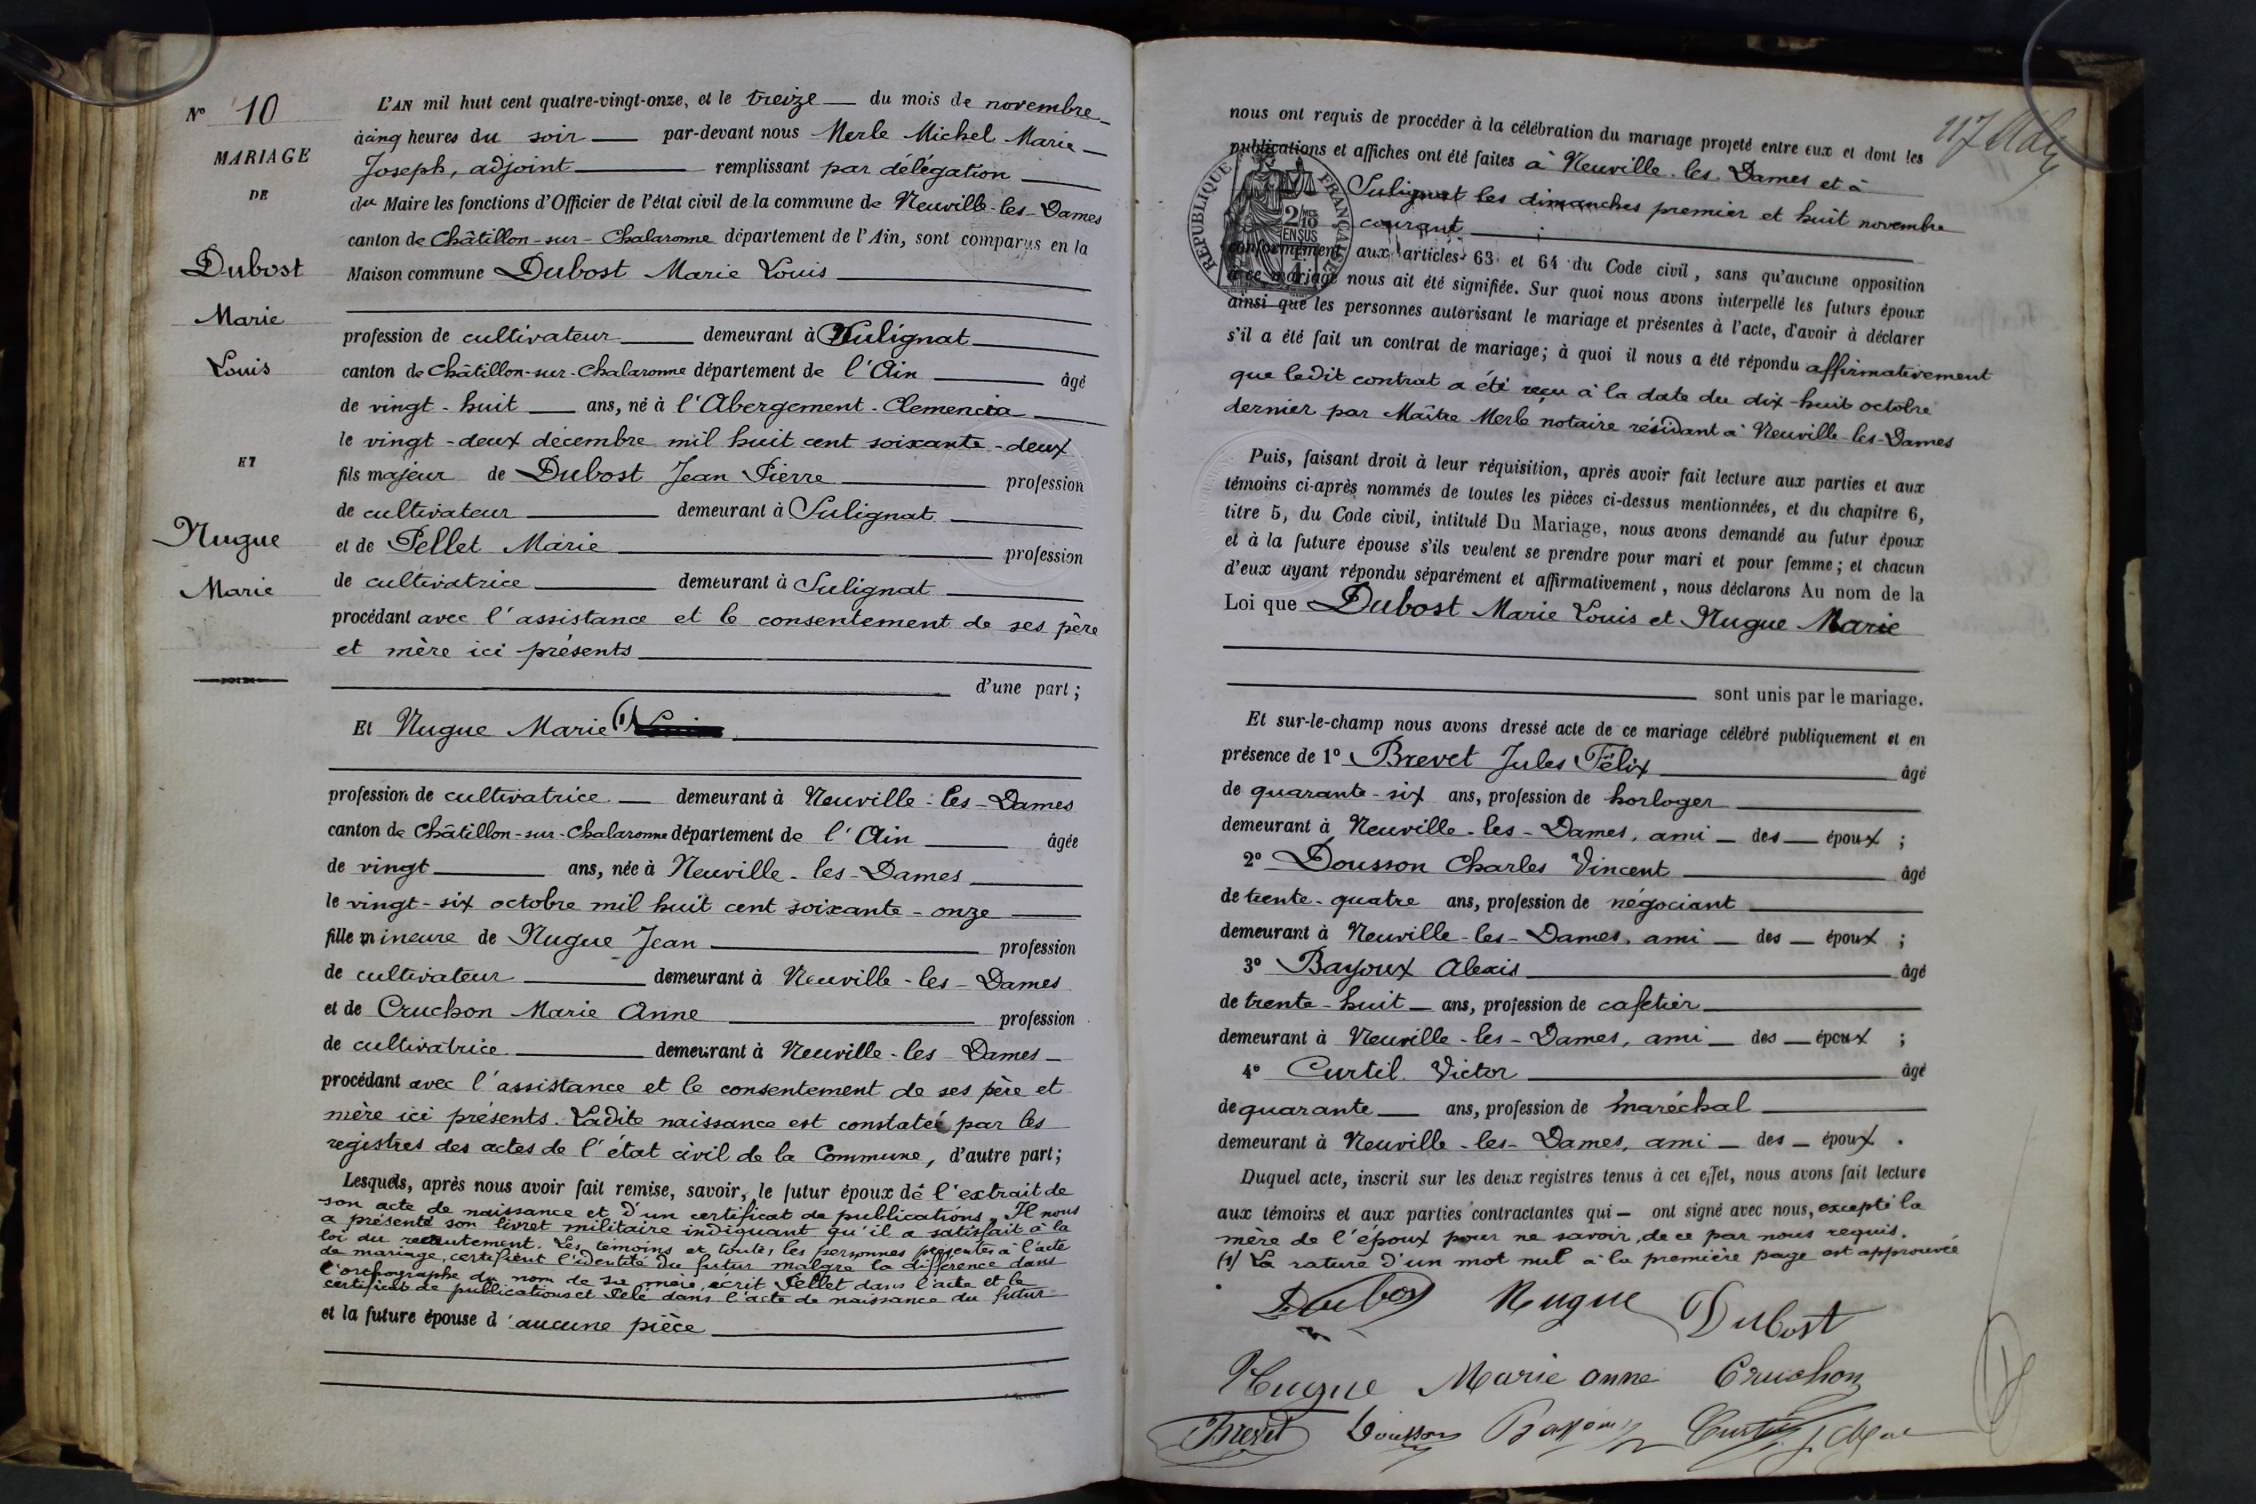 N° 10
MARIAGE
DE
Dubost
Marie
Louis
ET
Nugue
Marie
L'AN mil huit cent quatre-vingt-onze, et le treize du mois de novembre
à cinq heures du soir par-devant nous Merle Michel Marie
Joseph, adjoint remplissant par délégation
du Maire les fonctions d'Officier de l'état civil de la commune de Neuville-les-Dames
canton de Châtillon-sur-Chalaronne département de l'Ain, sont comparus en la
Maison commune Dubost Marie Louis
profession de cultivateur demeurant à Sulignat
canton de Châtillon-sur-Chalaronne département de l'Ain âgé
de vingt-huit ans, né à l'Abergement-Clemencia
le vingt-deux décembre mil huit cent soixante-deux
fils majeur de Dubost Jean Pierre profession
de cultivateur demeurant à Sulignat
et de Pellet Marie profession
de cultivatrice demeurant à Sulignat
procédant avec l'assistance et le consentement de ses père
et mère ici présents
d'une part ;
Et Nugue Marie (1)
profession de cultivatrice demeurant à Neuville-les-Dames
canton de Châtillon-sur-Chalaronne département de l'Ain âgée
de vingt ans, née à Neuville-les-Dames
le vingt-six octobre mil huit cent soixante-onze
fille mineure de Nugue Jean profession
de cultivateur demeurant à Neuville-les-Dames
et de Cruchon Marie Anne profession
de cultivatrice demeurant à Neuville-les Dames
procédant avec l'assistance et le consentement de ses père et
mère ici présents. Ladite naissance est constatée par les
registres des actes de l'état civil de la Commune, d'autre part ;
Lesquels, après nous avoir fait remise, savoir, le futur époux de l'extrait de
son acte de naissance et d'un certificat de publications. Il nous
a présenté son livret militaire indiquant qu'il a satisfait à la
loi du recrutement. Les témoins et toutes les personnes présentes à l'acte
de mariage, certifient l'identité du futur malgré la différence dans
l'orthographe du nom de sa mère, écrit Pellet dans l'acte et le
certificat de publications et Pelé dans l'acte de naissance du futur
et la future épouse d'aucune pièce
nous ont requis de procéder à la célébration du mariage projeté entre eux et dont les
publications et affiches ont été faites à Neuville-les-Dames et à
Sulignat les dimanches premier et huit novembre
courant
RÉPUBLIQUE FRANÇAISE
2/10 EN SUS
conformément aux articles 63 et 64 du Code civil, sans qu'aucune opposition
à ce mariage nous ait été signifiée. Sur quoi nous avons interpellé les futurs époux
ainsi que les personnes autorisant le mariage et présentes à l'acte, d'avoir à déclarer
s'il a été fait un contrat de mariage ; à quoi il nous a été répondu affirmativement
que ledit contrat a été reçu à la date du dix-huit octobre
dernier par Maître Merle notaire résidant à Neuville-les-Dames
Puis, faisant droit à leur réquisition, après avoir fait lecture aux parties et aux
témoins ci-après nommés de toutes les pièces ci-dessus mentionnées, et du chapitre 6,
titre 5, du Code civil, intitulé Du Mariage, nous avons demandé au futur époux
et à la future épouse s'ils veulent se prendre pour mari et pour femme ; et chacun
d'eux ayant répondu séparément et affirmativement, nous déclarons Au nom de la
Loi que Dubost Marie Louis et Nugue Marie
sont unis par le mariage.
Et sur-le-champ nous avons dressé acte de ce mariage célébré publiquement et en
présence de 1° Brevet Jules Félix âgé
de quarante-six ans, profession de horloger
demeurant à Neuville-les-Dames, ami des époux ;
2° Dousson Charles Vincent âgé
de trente-quatre ans, profession de négociant
demeurant à Neuville-les-Dames, ami des époux ;
3° Bayoux Alexis âgé
de trente-huit ans, profession de cafetier
demeurant à Neuville-les-Dames, ami des époux ;
4° Curtil Victor âgé
de quarante ans, profession de maréchal
demeurant à Neuville-les-Dames, ami des époux.
Duquel acte, inscrit sur les deux registres tenus à cet effet, nous avons fait lecture
aux témoins et aux parties contractantes qui ont signé avec nous, excepté la
mère de l'époux pour ne savoir, de ce par nous requis.
(1) La rature d'un mot nul à la première page est approuvée
Dubost Nugue Dubost
Nugue Marie anne Cruchon
Brevet Dousson Curtil